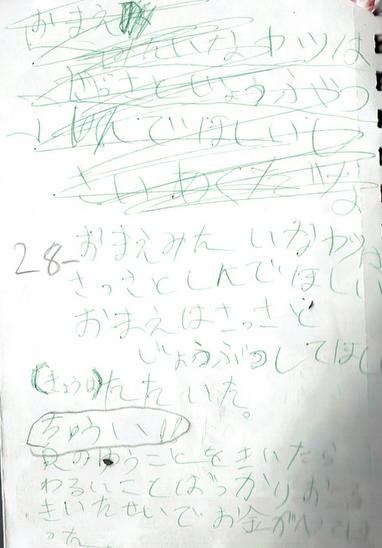 おまえ
みたいなやつは
さっさとじょうぶつ
しんでほしいし
さいあくだ
よ
28-
おまえみたいなやつは
さっさとしんでほしい
おまえはさっさと
じょうぶつしてほし
(きょうは)たたいた。
ちゅうい!!
のゆうことをきいたら
わるいことばっかりお
きいたせいでお金が
った